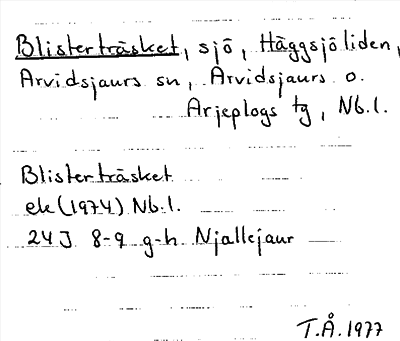 Blisterträsket, sjö, Häggsjöliden,
Arvidsjaurs sn, Arvidsjaurs o.
Arjeplogs tg, Nb.l.
Blisterträsket
ek (1974) Nb.l.
24J 8-9 g-h Njallejaur
T.Å. 1977